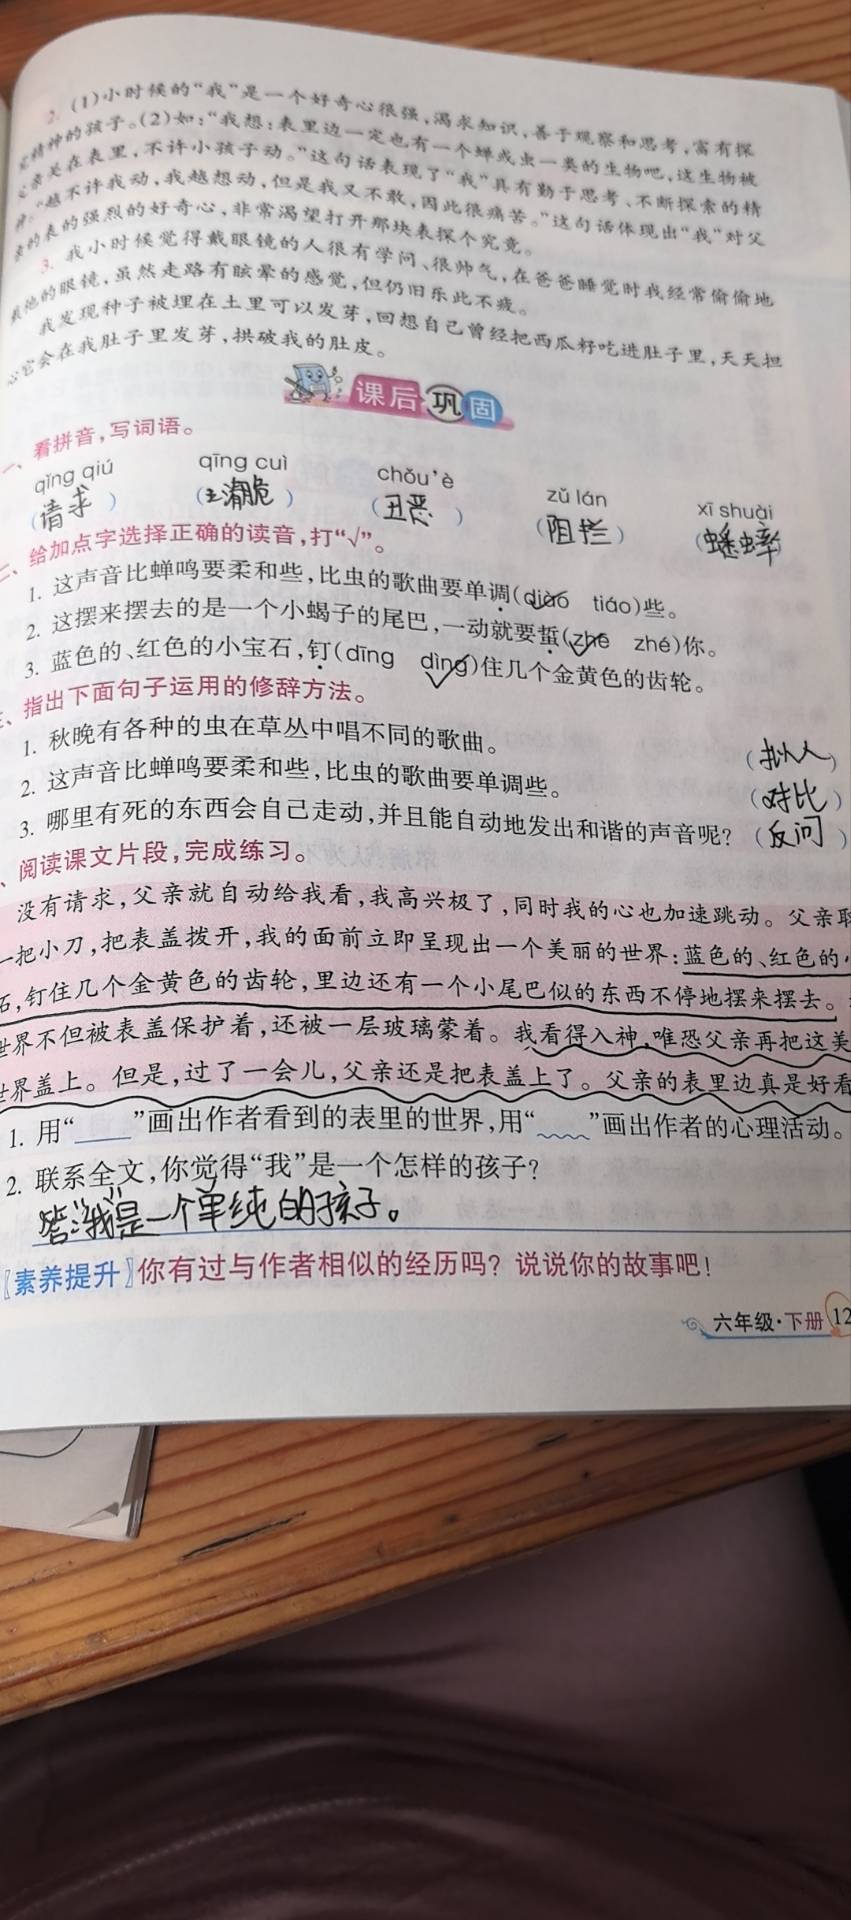 2. (1)小时候的“我”是一个好奇心很强,渴求知识,善于观察和思考,富有探
究精神的孩子。(2)如:“我想:表里边一定也有一个蝉或虫一类的生物吧,这生物被
父亲关在表里,不许小孩子动。”这句话表现了“我”具有勤于思考、不断探索的精
神。“越不许我动,我越想动,但是我又不敢,因此很痛苦。”这句话体现出“我”对父
亲的表的强烈的好奇心,非常渴望打开那块表探个究竟。
3. 我小时候觉得戴眼镜的人很有学问、很帅气,在爸爸睡觉时我经常偷偷地
戴他的眼镜,虽然走路有眩晕的感觉,但仍旧乐此不疲。
我发现种子被埋在土里可以发芽,回想自己曾经把西瓜籽吃进肚子里,天天担
心它会在我肚子里发芽,拱破我的肚皮。
课后巩固
一、看拼音,写词语。
qǐng qiú qīng cuì chǒu'è zǔ lán xī shuài
(请求) (清脆) (丑恶) (阻拦) (蟋蟀)
二、给加点字选择正确的读音,打“√”。
1. 这声音比蝉鸣要柔和些,比虫的歌曲要单调(diào tiáo)些。
2. 这摆来摆去的是一个小蝎子的尾巴,一动就要蜇(zhē zhé)你。
3. 蓝色的、红色的小宝石,钉(dīng dìng)住几个金黄色的齿轮。
三、指出下面句子运用的修辞方法。
1. 秋晚有各种的虫在草丛中唱不同的歌曲。 (拟人)
2. 这声音比蝉鸣要柔和些,比虫的歌曲要单调些。 (对比)
3. 哪里有死的东西会自己走动,并且能自动地发出和谐的声音呢? (反问)
、阅读课文片段,完成练习。
没有请求,父亲就自动给我看,我高兴极了,同时我的心也加速跳动。父亲取
一把小刀,把表盖拨开,我的面前立即呈现出一个美丽的世界:蓝色的、红色的小
石,钉住几个金黄色的齿轮,里边还有一个小尾巴似的东西不停地摆来摆去。
世界不但被表盖保护着,还被一层玻璃蒙着。我看得入神,唯恐父亲再把这美
世界盖上。但是,过了一会儿,父亲还是把表盖上了。父亲的表里边真是好看
1. 用“____”画出作者看到的表里的世界,用“﹏﹏”画出作者的心理活动。
2. 联系全文,你觉得“我”是一个怎样的孩子?
答:“我”是一个单纯的孩子。
〖素养提升〗你有过与作者相似的经历吗?说说你的故事吧!
六年级·下册 12